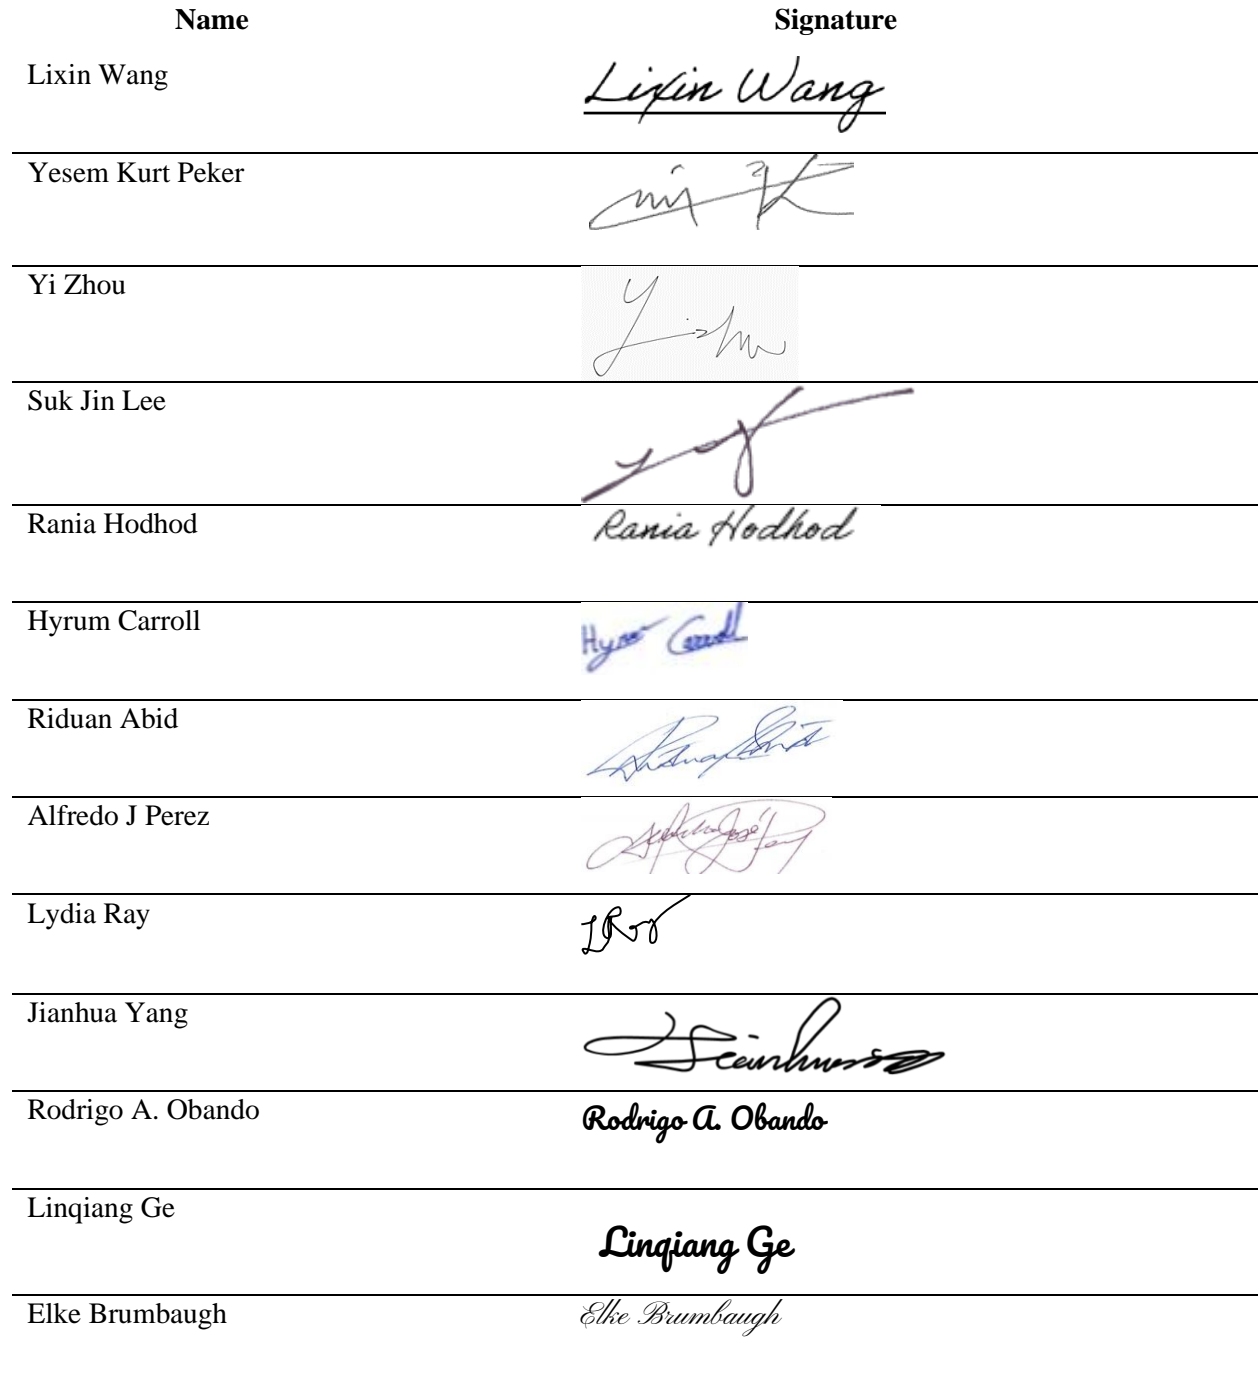 Name Signature
Lixin Wang Lixin Wang
Yesem Kurt Peker
Yi Zhou
Suk Jin Lee
Rania Hodhod Rania Hodhod
Hyrum Carroll Hyrum Carroll
Riduan Abid
Alfredo J Perez
Lydia Ray LRay
Jianhua Yang
Rodrigo A. Obando Rodrigo A. Obando
Linqiang Ge Linqiang Ge
Elke Brumbaugh Elke Brumbaugh